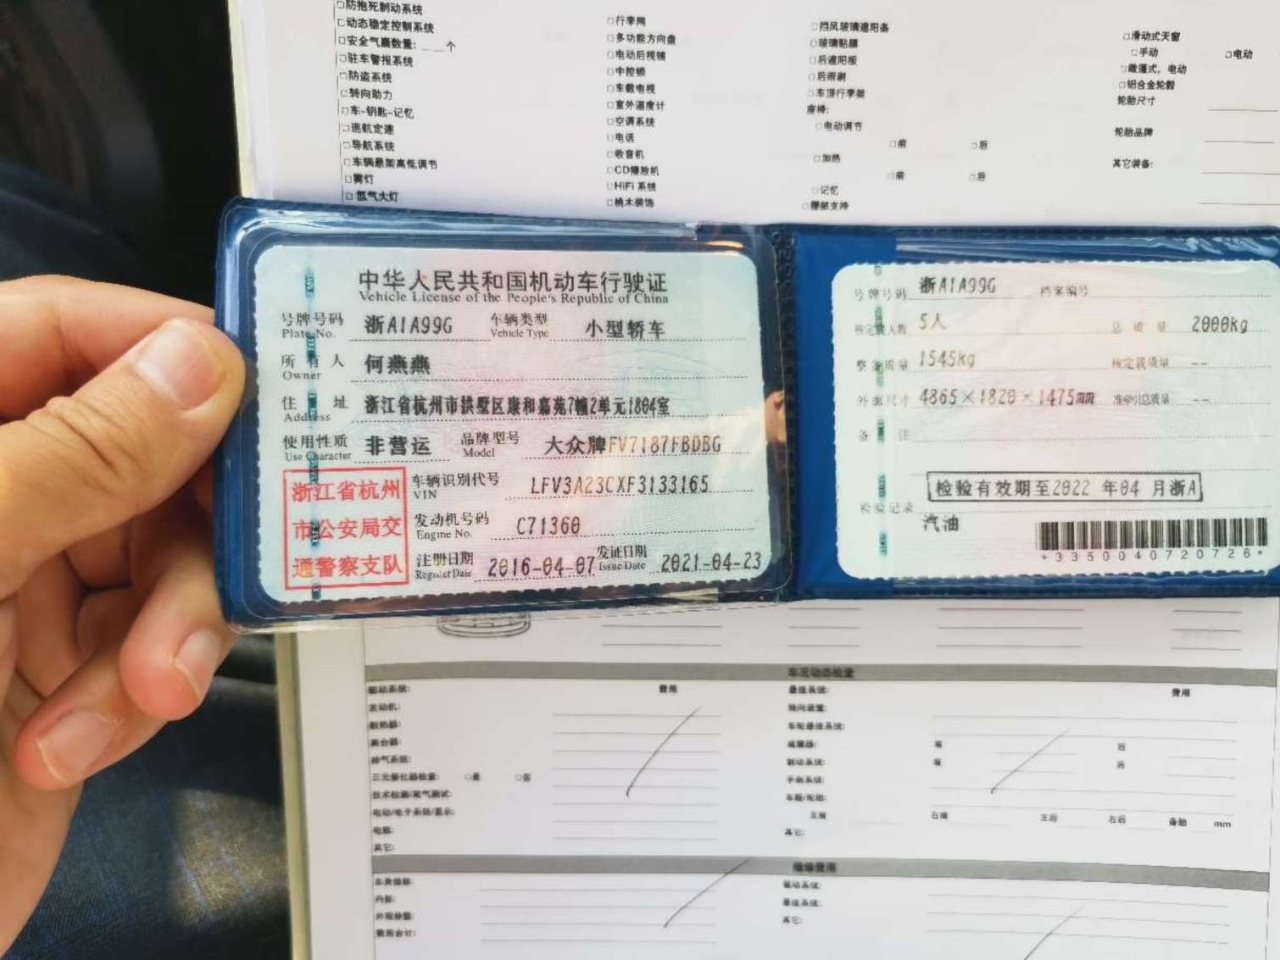 □防抱死制动系统
□动态稳定控制系统
□安全气囊数量: __个
□驻车警报系统
□防盗系统
□转向助力
□车-钥匙-记忆
□巡航定速
□导航系统
□车辆悬架高低调节
□雾灯
□氙气大灯
□行李网
□多功能方向盘
□电动后视镜
□中控锁
□车载电视
□室外温度计
□空调系统
□电话
□收音机
□CD播放机
□HiFi 系统
□桃木装饰
□挡风玻璃遮阳条
□玻璃贴膜
□后遮阳板
□后雨刷
□车顶行李架
座椅:
□电动调节
□前 □后
□加热
□前 □后
□记忆
□腰部支持
□滑动式天窗
□手动 □电动
□敞篷式，电动
□铝合金轮毂
轮胎尺寸
轮胎品牌
其它装备:
中华人民共和国机动车行驶证
Vehicle License of the People's Republic of China
号牌号码 浙A1A99G 车辆类型 小型轿车
Plate No. Vehicle Type
所有人 何燕燕
Owner
住址 浙江省杭州市拱墅区康和嘉苑7幢2单元1804室
Address
使用性质 非营运 品牌型号 大众牌FV7187FBDBG
Use Character Model
浙江省杭州
市公安局交
通警察支队
车辆识别代号 LFV3A23CXF3133165
VIN
发动机号码 C71360
Engine No.
注册日期 2016-04-07 发证日期 2021-04-23
Register Date Issue Date
号牌号码 浙A1A99G 档案编号
核定载人数 5人 总质量 2000kg
整备质量 1545kg 核定载质量 --
外廓尺寸 4865×1820×1475mm 准牵引总质量 --
备注
检验有效期至2022 年04 月浙A
检验记录
汽油
*3350040720726*
车况动态检查
驱动系统: 费用
发动机:
散热器:
离合器:
排气系统:
三元催化器检查: □是 □否
技术检测/尾气测试:
电动/电子系统/显示:
电瓶:
其它:
悬挂系统: 费用
转向装置:
车轮悬挂系统:
减震器: 前 后
制动系统: 前 后
手刹系统:
车胎/轮胎:
左前 右前 左后 右后 备胎 mm
其它:
维修费用
车身维修:
内部:
外观修整:
费用合计:
驱动系统:
悬挂系统:
其它: